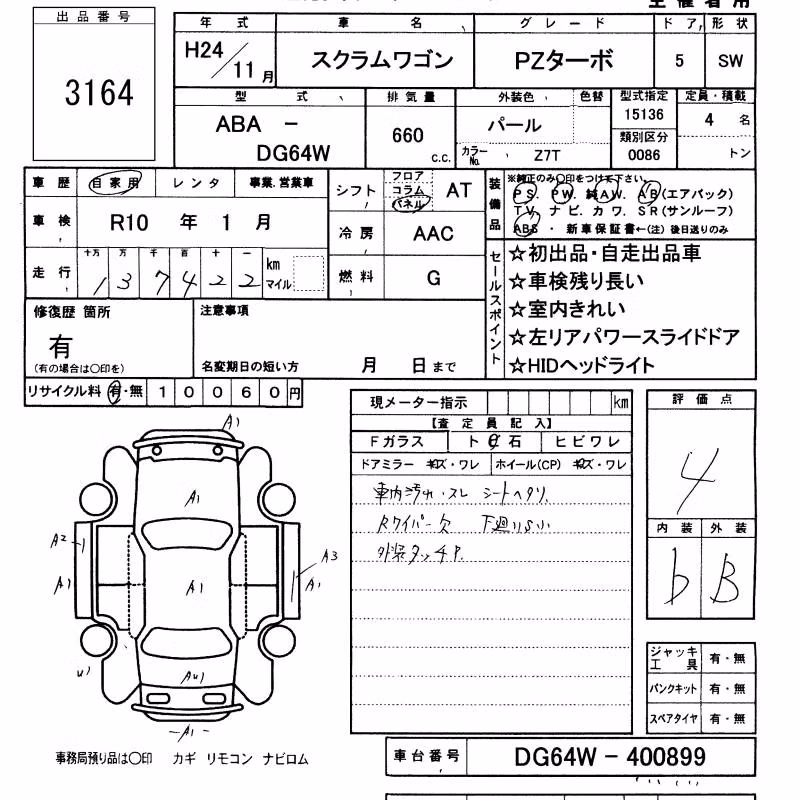 出品番号
3164
年式 車名 グレード ドア 形状
H24/11月 スクラムワゴン PZターボ 5 SW
型式 排気量 外装色 色替 型式指定 定員・積載
ABA - DG64W 660 c.c. パール 15136 4名
カラーNo. Z7T 類別区分 0086 トン
車歴 自家用 レンタ 事業.営業車
車検 R10年1月
走行 十万 万 千 百 十 一
137422 km マイル
シフト フロア コラム パネル AT
冷房 AAC
燃料 G
装備品
※純正のみ〇印をつけて下さい。
PS. PW. 純AW. AB(エアバック)
TV. ナビ. カワ. SR(サンルーフ)
ABS ・ 新車保証書←(注)後日送りのみ
セールスポイント
☆初出品・自走出品車
☆車検残り長い
☆室内きれい
☆左リアパワースライドドア
☆HIDヘッドライト
修復歴 箇所
有
(有の場合は〇印を)
注意事項
名変期日の短い方 月 日まで
リサイクル料 有・無 10060円
現メーター指示 km
【査定員記入】
Fガラス ト石 ヒビワレ
ドアミラー キズ・ワレ ホイール(CP) キズ・ワレ
車内汚れ・スレ シートヘタリ
Rワイパー欠 下廻りサビ
外装タッチP.
評価点
4
内装 外装
b B
ジャッキ工具 有・無
パンクキット 有・無
スペアタイヤ 有・無
A1
A1
A2
A1
A1
A3
A1
U1
AU1
A1
事務局預り品は〇印 カギ リモコン ナビロム
車台番号 DG64W-400899